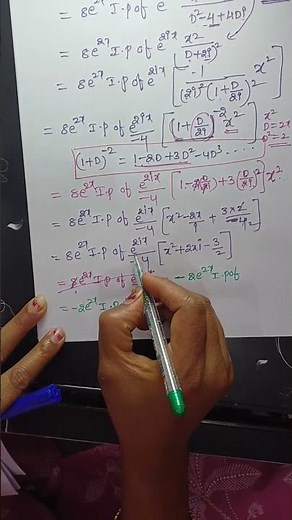 = 8e^{2x} I.p of e
D²-4+4Di
= 8e^{2x} I.p of e^{2ix} x²/(D+2i)²
= 8e^{2x} I.p of e^{2ix} [ 1/((2i)²(1+D/2i)²) x² ]
= 8e^{2x} I.p of e^{2ix}/-4 [ (1+D/2i)^{-2} x² ]
x²
D=2x
D²=2
(1+D)^{-2} = 1-2D+3D²-4D³.....
= 8e^{2x} I.p of e^{2ix}/-4 [1-2D/2i+3(D/2i)²] x²
= 8e^{2x} I.p of e^{2ix}/-4 [x²-2x/i+3×2/-4]
= 8e^{2x} I.p of e^{2ix}/-4 [x²+2xi-3/2]
= 8e^{2x} I.p of e -8e^{2x} I.p of
= -2e^{2x} I.p